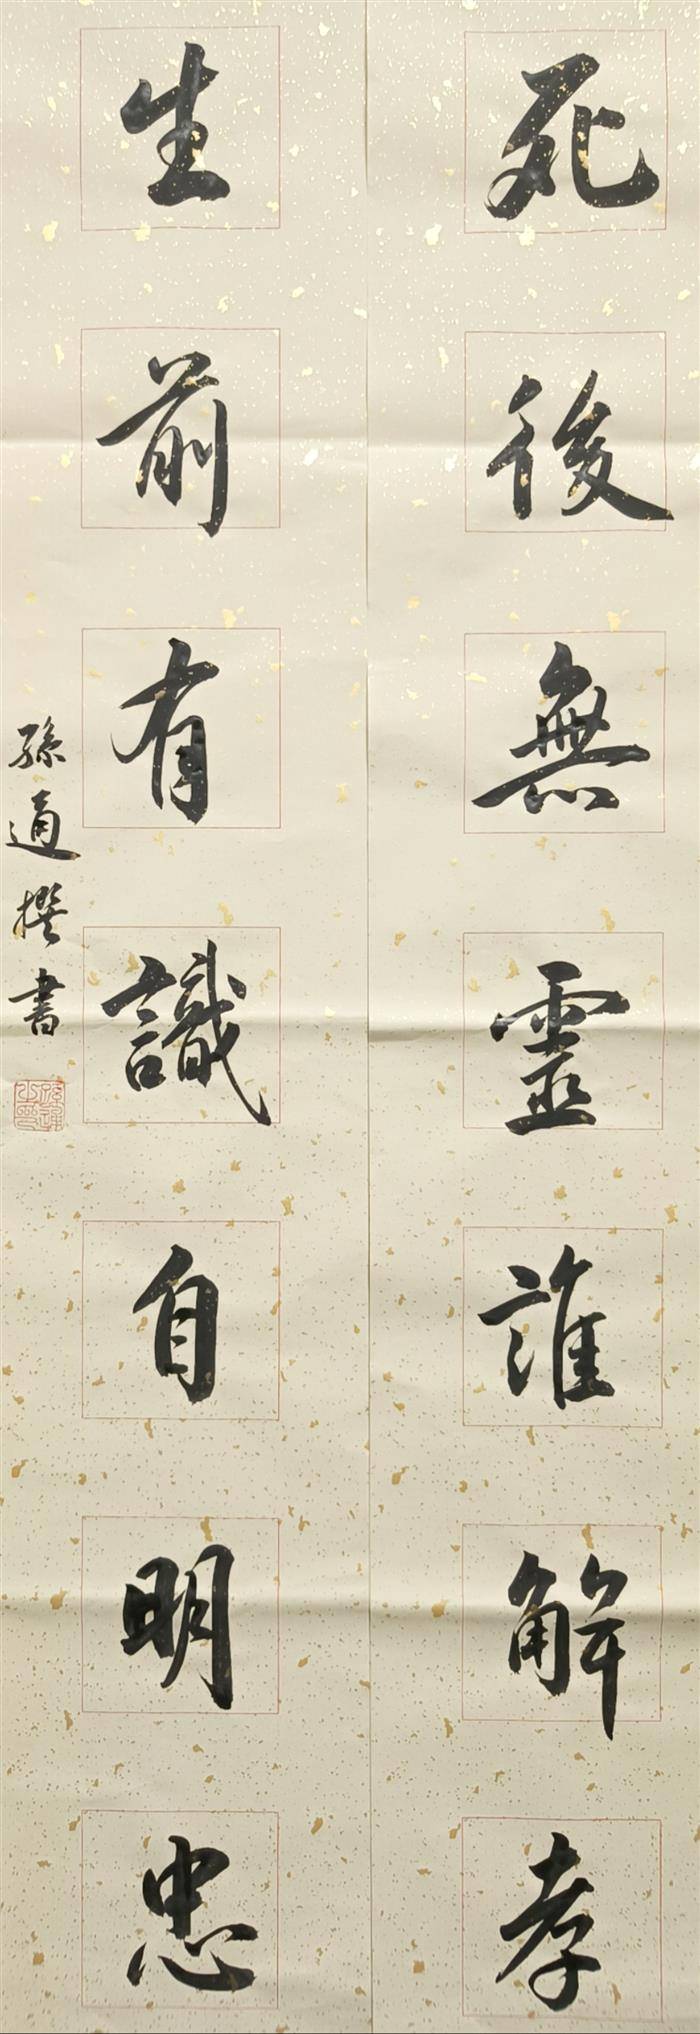 死後無靈誰解孝
生前有識自明忠
孫通撰書